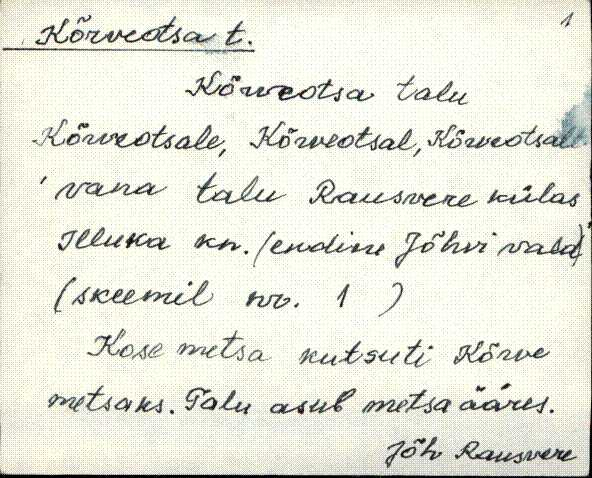 1
Kõrveotsa t.
Kõrveotsa talu
Kõrveotsale, Kõrveotsal, Kõrveotsalt
'vana talu Rausvere külas
Illuka kn. (endine Jõhvi vald)'
(skeemil nr. 1 )
Kose metsa kutsuti Kõrve
metsaks. Talu asub metsa ääres.
Jõh Rausvere